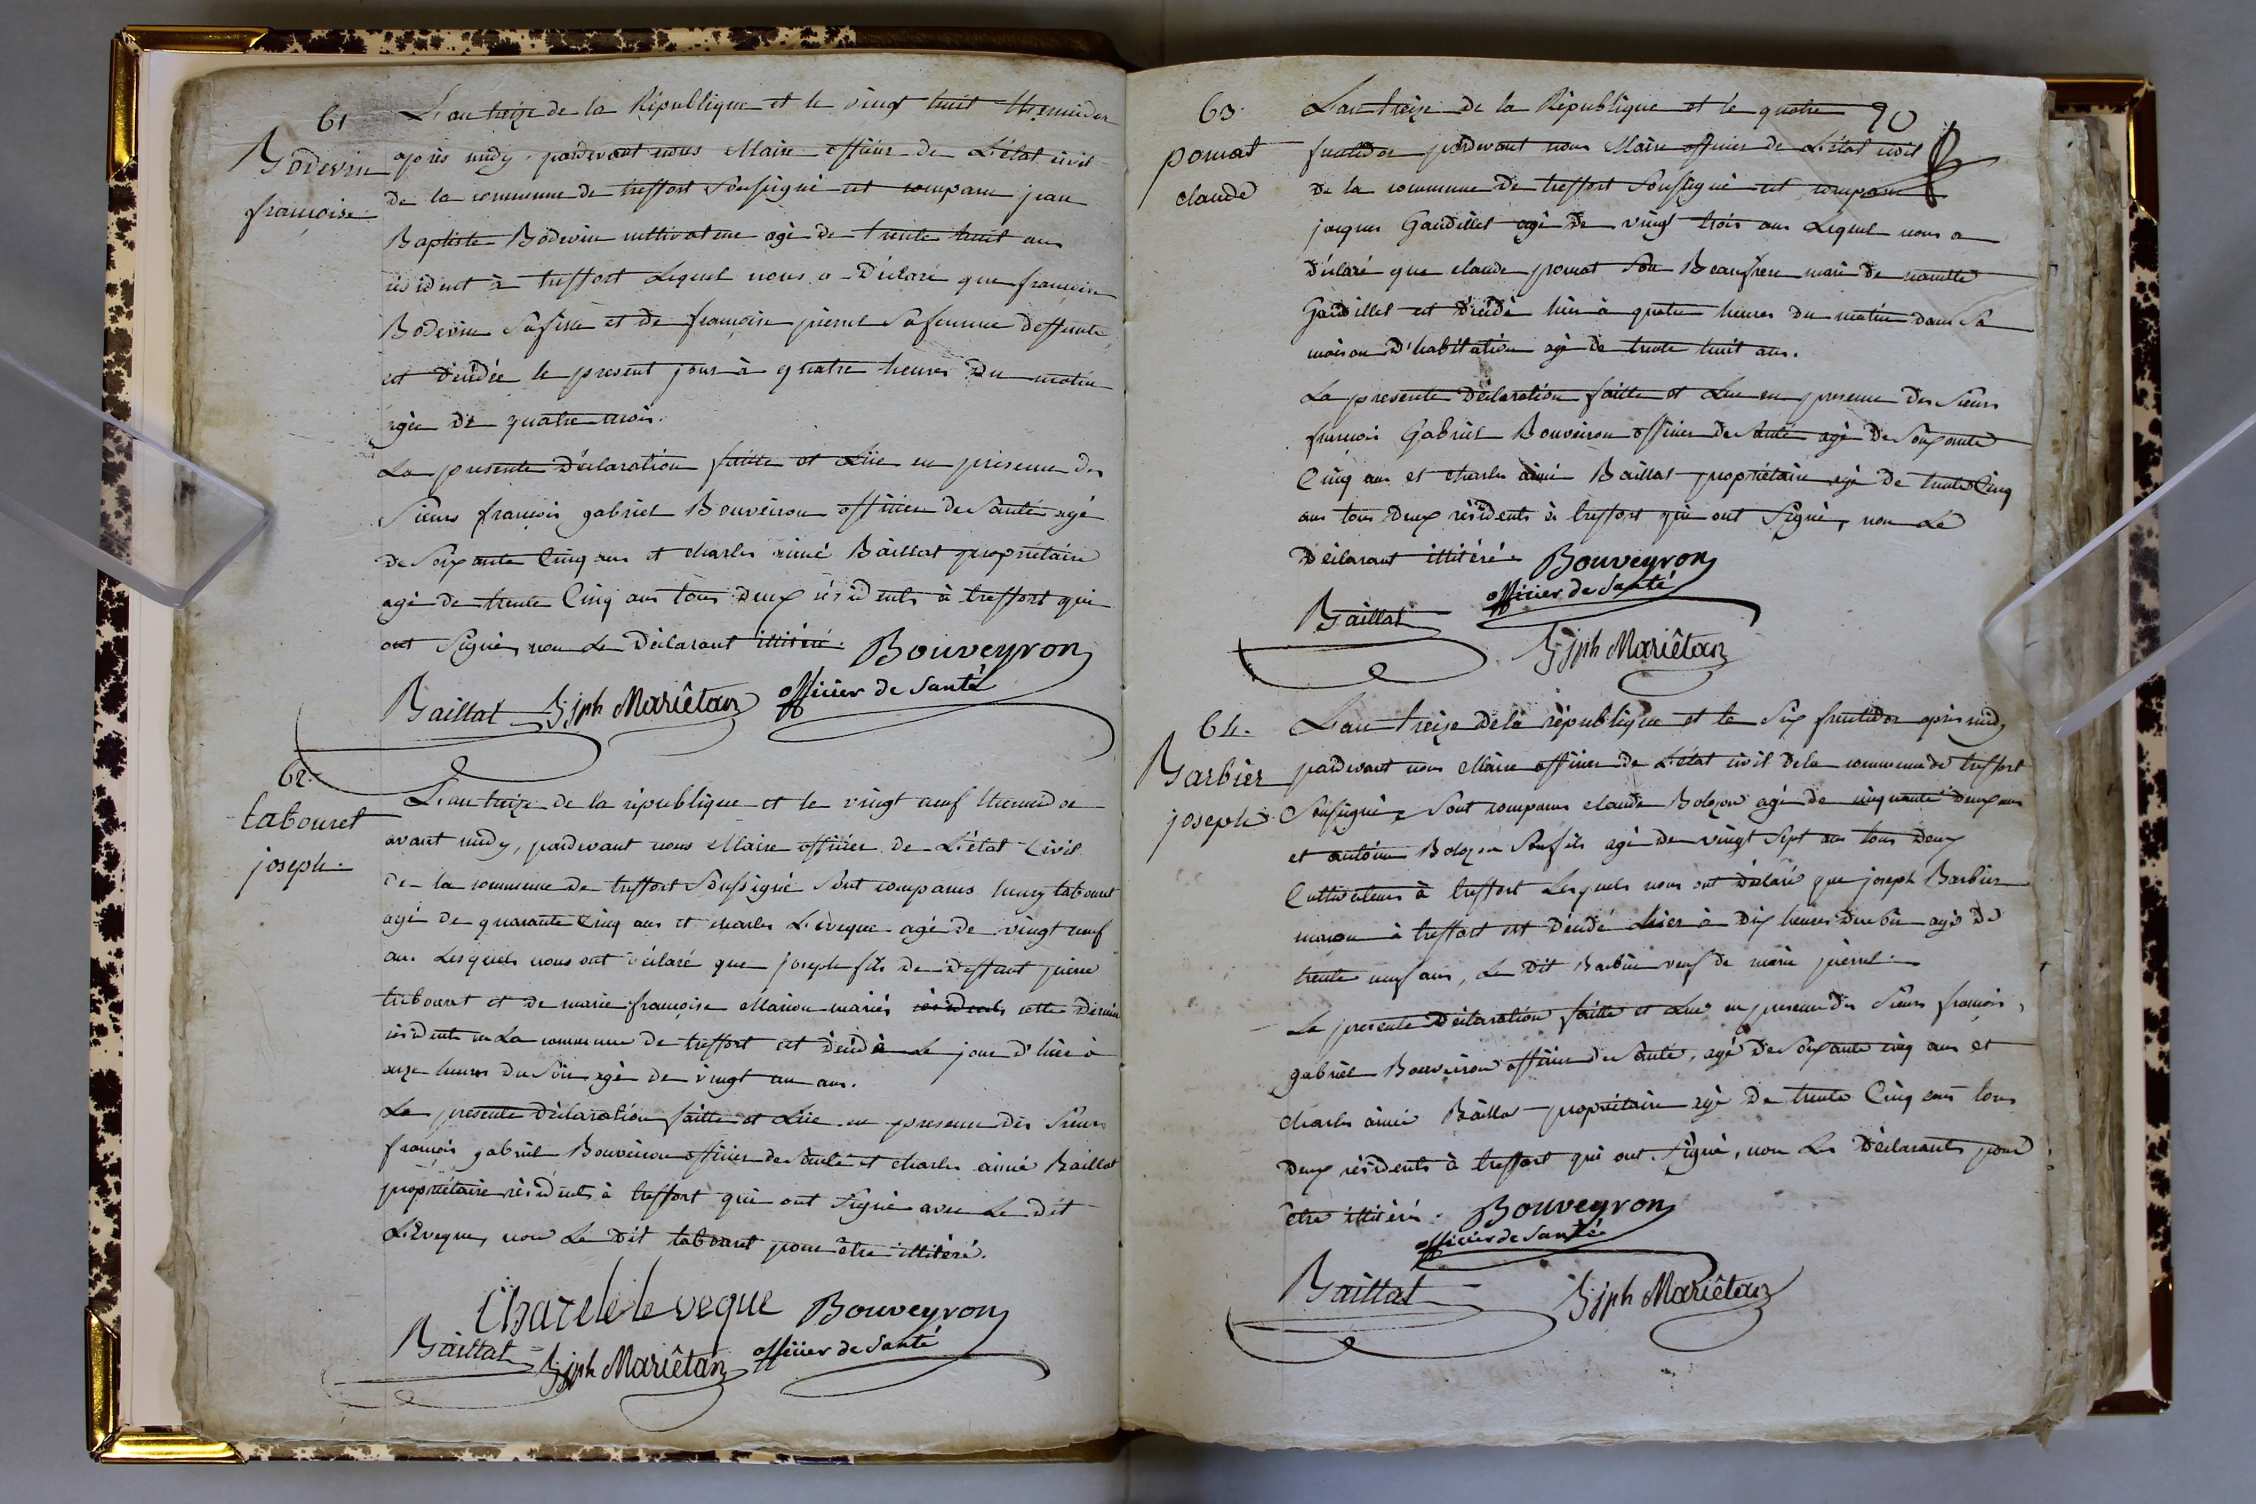 61
Bodevin
françoise
L'an treize de la République et le vingt huit thermidor
après midy, pardevant nous Maire officier de L'état civil
de la commune de treffort Soussigné est comparu jean
Baptiste Bodevin cultivateur agé de trente huit ans
résident à treffort Lequel nous a Déclaré que françoise
Bodevin Sa fille et de françoise pierrel Sa femme deffunte,
est décédée le present jour à quatre heures Du matin
agée de quatre mois.
La presente déclaration faitte et Lüe en présence des
Sieurs françois gabriel Bouveiron officier de Santé agé
de Soixante Cinq ans et charles aimé Baillat propriétaire
agé de trente Cinq ans tous deux résidents à treffort qui
ont Signé, non Le Déclarant illitéré. Bouveyron
officier de Santé
Baillat Bjph Mariêtan
62.
tabouret
joseph.
L'an treize de la république et le vingt neuf thermidor
avant midy, pardevant nous Maire officier de L'état Civil
de la commune de treffort Soussigné Sont comparus henry tabouret
agé de quarante Cinq ans et charles L'évêque agé de vingt neuf
ans Lesquels nous ont déclaré que joseph fils de deffunt pierre
tabouret et de marie françoise Marion mariés résidents cette Dernière
résidente en La commune de treffort est décédé Le jour d'hier à
onze heures du Soir agé de vingt un ans.
La presente déclaration faitte et Lüe en presence des Sieurs
françois gabriel Bouveiron officier de Santé et charles aimé Baillat
propriétaire résidents à treffort qui ont Signé avec Le dit
L'Eveque, non Le Dit tabouret pour être illitéré.
Charele le veque Bouveyron
officier de Santé
Baillat Bjph Mariêtan
90
63.
pomat
claude
L'an treize de la République et le quatre
fructidor pardevant nous Maire officier de L'état civil
de la commune de treffort Soussigné est comparu
jacques Gaudillet agé de vingt trois ans Lequel nous a
déclaré que claude pomat Son Beaufrere mari de
Gaudillet est décédé hier à quatre heures du matin dans Sa
maison d'habitation agé de trente huit ans.
La presente déclaration faitte et Lue en presence des Sieurs
françois Gabriel Bouveiron officier de Santé agé de Soixante
Cinq ans et charles aimé Baillat propriétaire agé de trente Cinq
ans tous deux résidents à treffort qui ont Signé, non Le
Déclarant illitéré. Bouveyron
officier de Santé
Baillat
Bjph Mariêtan
64.
Barbier
joseph
L'an treize de la république et le Six fructidor après midy
pardevant nous Maire officier de L'état civil de la commune de treffort
Soussigné, Sont comparus claude Bolozon agé de cinquante deux ans
et antoine Bolozon Son fils agé de vingt Sept ans tous deux
Cultivateurs à treffort Lesquels nous ont déclaré que joseph Barbier
maçon à treffort est décédé hier à Dix heures du Soir agé de
trente neuf ans, Le Dit Barbier veuf de marie pierrel.
La presente Déclaration faitte et Lue en presence des Sieurs françois,
gabriel Bouveiron officier de Santé, agé de Soixante cinq ans et
Charles aimé Baillat propriétaire agé de trente Cinq ans tous
deux résidents à treffort qui ont Signé, non Les Déclarants pour
être illitéré. Bouveyron
officier de Santé
Baillat Bjph Mariêtan